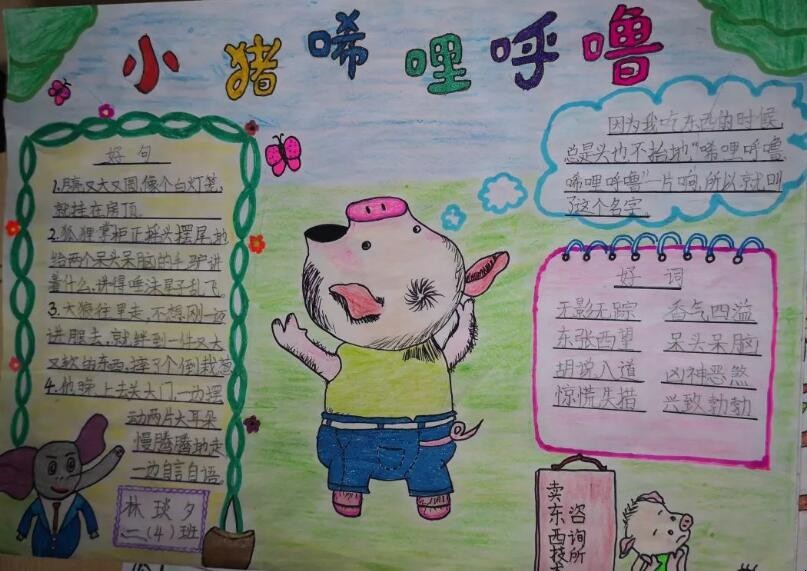 小猪唏哩呼噜
好句
1.月亮又大又圆,像个白灯笼,
就挂在房顶。
2.狐狸掌柜正摇头摆尾地
给两个呆头呆脑的毛驴讲
着什么,讲得唾沫星子乱飞。
3.大猴往里走,不想刚一
进去,就绊到一件又大
又软的东西,摔了个倒栽葱
4.他晚上去关大门,一边摆
动两片大耳朵
慢腾腾地走
一边自言自语。
林琰夕
二(4)班
因为我吃东西的时候,
总是头也不抬地“唏哩呼噜
唏哩呼噜”一片响,所以就叫
了这个名字。
好词
无影无踪 香气四溢
东张西望 呆头呆脑
胡说八道 凶神恶煞
惊慌失措 兴致勃勃
卖东西技术
咨询所